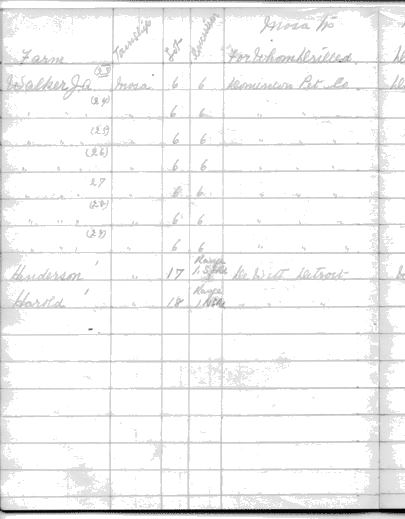 Mosa Tp
Farm Township Lot Concession For Whom Drilled
(23)
Walker J a Mosa 6 6 Dominion Pet. Co
(24)
" " " " 6 6 " " "
(25)
" " " " 6 6 " " "
(26)
" " " " 6 6 " " "
27
" " " " 6 6 " " "
(28)
" " " " 6 6 " " "
(29)
" " " " 6 6 " " "
Henderson ' " 17 Range 1 De Witt Detroit
Harold ' " 18 Range 1 " " "